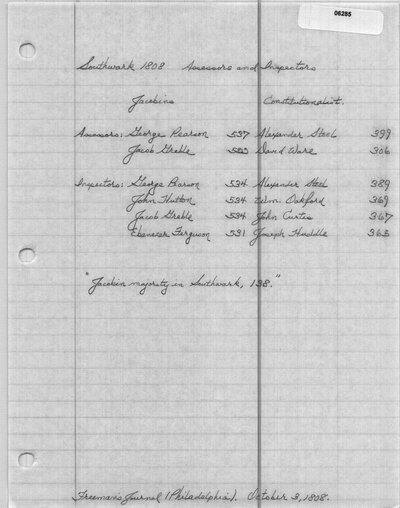 06285
Southwark 1808 Assessors and Inspectors
Jacobins Constitutionalist.
Assessors: George Pearson 537 Alexander Steel 399
Jacob Greble David Ware 306
Inspectors: George Pearson 534 Alexander Steel 389
John Hutton 534 Wm. Oakford 369
Jacob Greble 534 John Curtis 367
Ebenezer Ferguson 531 Joseph Huddle 363
"Jacobin majority in Southwark, 138."
Freeman's Journal (Philadelphia). October 3, 1808.